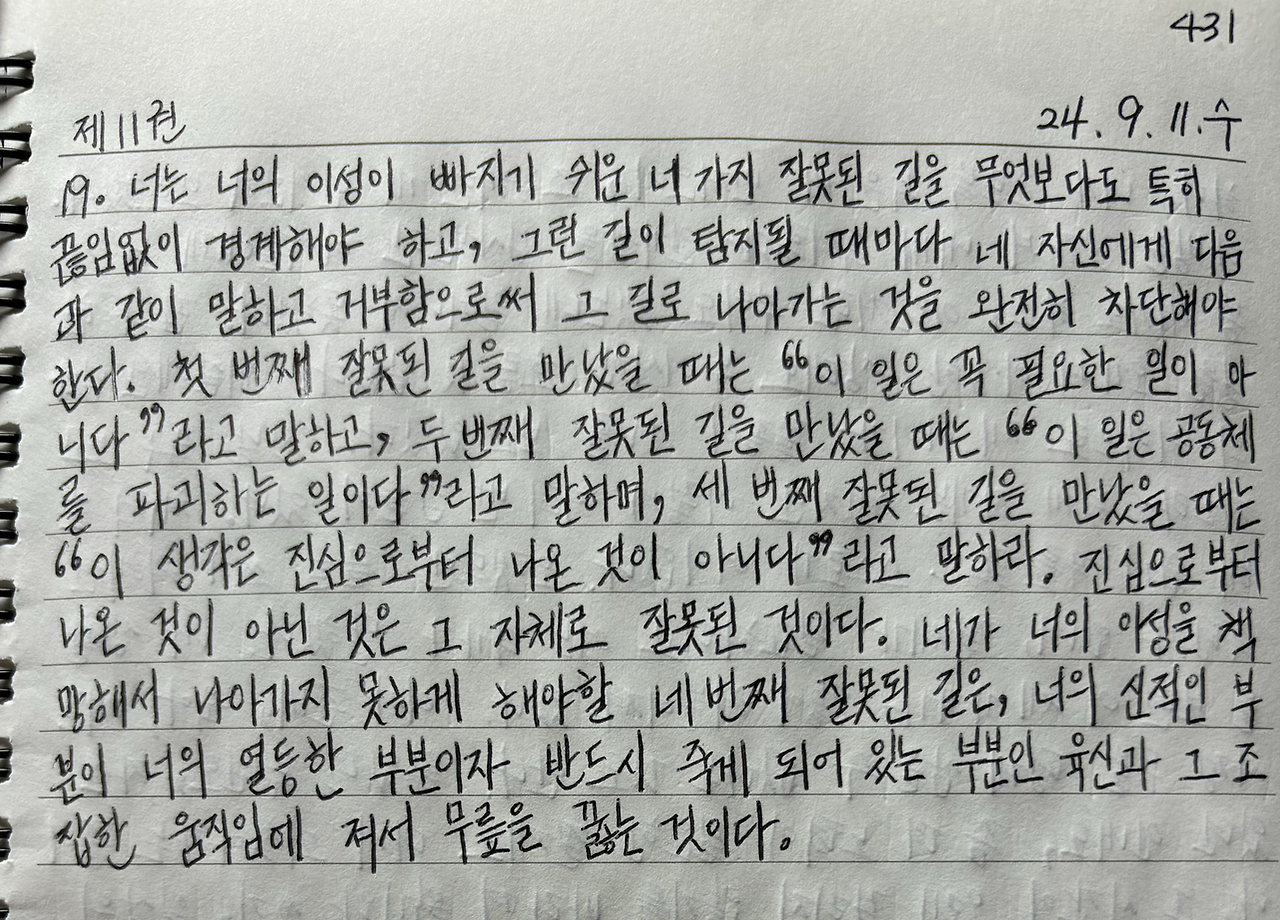 431
제11권 24. 9. 11. 수
19. 너는 너의 이성이 빠지기 쉬운 네 가지 잘못된 길을 무엇보다도 특히
끊임없이 경계해야 하고, 그런 길이 탐지될 때마다 네 자신에게 다음
과 같이 말하고 거부함으로써 그 길로 나아가는 것을 완전히 차단해야
한다. 첫 번째 잘못된 길을 만났을 때는 “이 일은 꼭 필요한 일이 아
니다”라고 말하고, 두 번째 잘못된 길을 만났을 때는 “이 일은 공동체
를 파괴하는 일이다”라고 말하며, 세 번째 잘못된 길을 만났을 때는
“이 생각은 진심으로부터 나온 것이 아니다”라고 말하라. 진심으로부터
나온 것이 아닌 것은 그 자체로 잘못된 것이다. 네가 너의 이성을 책
망해서 나아가지 못하게 해야할 네 번째 잘못된 길은, 너의 신적인 부
분이 너의 열등한 부분이자 반드시 죽게 되어 있는 부분인 육신과 그 조
잡한 움직임에 져서 무릎을 꿇는 것이다.